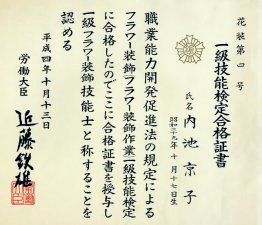 花装第四号
一級技能検定合格証書
氏名 内池京子
昭和三九年十月十七日生
職業能力開発促進法の規定による
フラワー装飾フラワー装飾作業一級技能検定
に合格したのでここに合格証書を授与し
一級フラワー装飾技能士と称することを
認める
平成四年十月十三日
労働大臣
近藤鉄雄